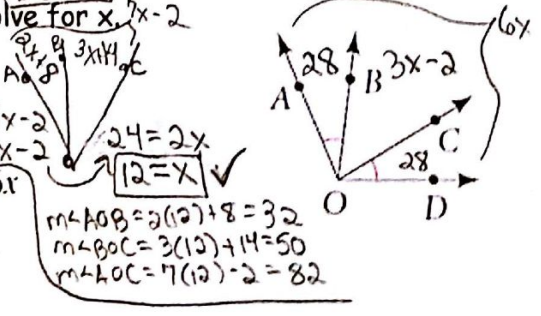 lve for x. 7x-2
2x+8 B 3x+14
A C
x-2
x-2
24=2x
12=x ✓
m∠AOB=2(12)+8=32
m∠BOC=3(12)+14=50
m∠AOC=7(12)-2=82
6x
28 B 3x-2
A
C
28
O D